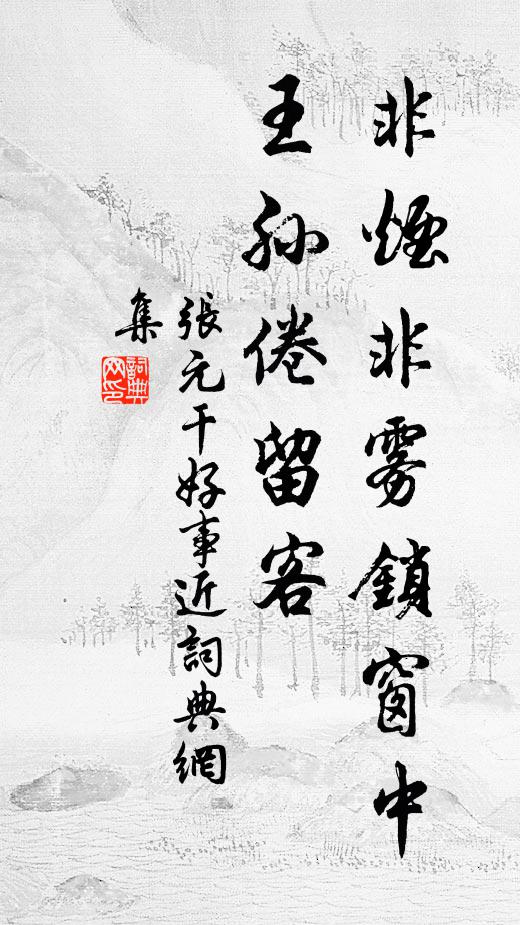 非煙非雾鎖窗中
王孙倦留客
張元干好事近詞典網
集
詞典
网印